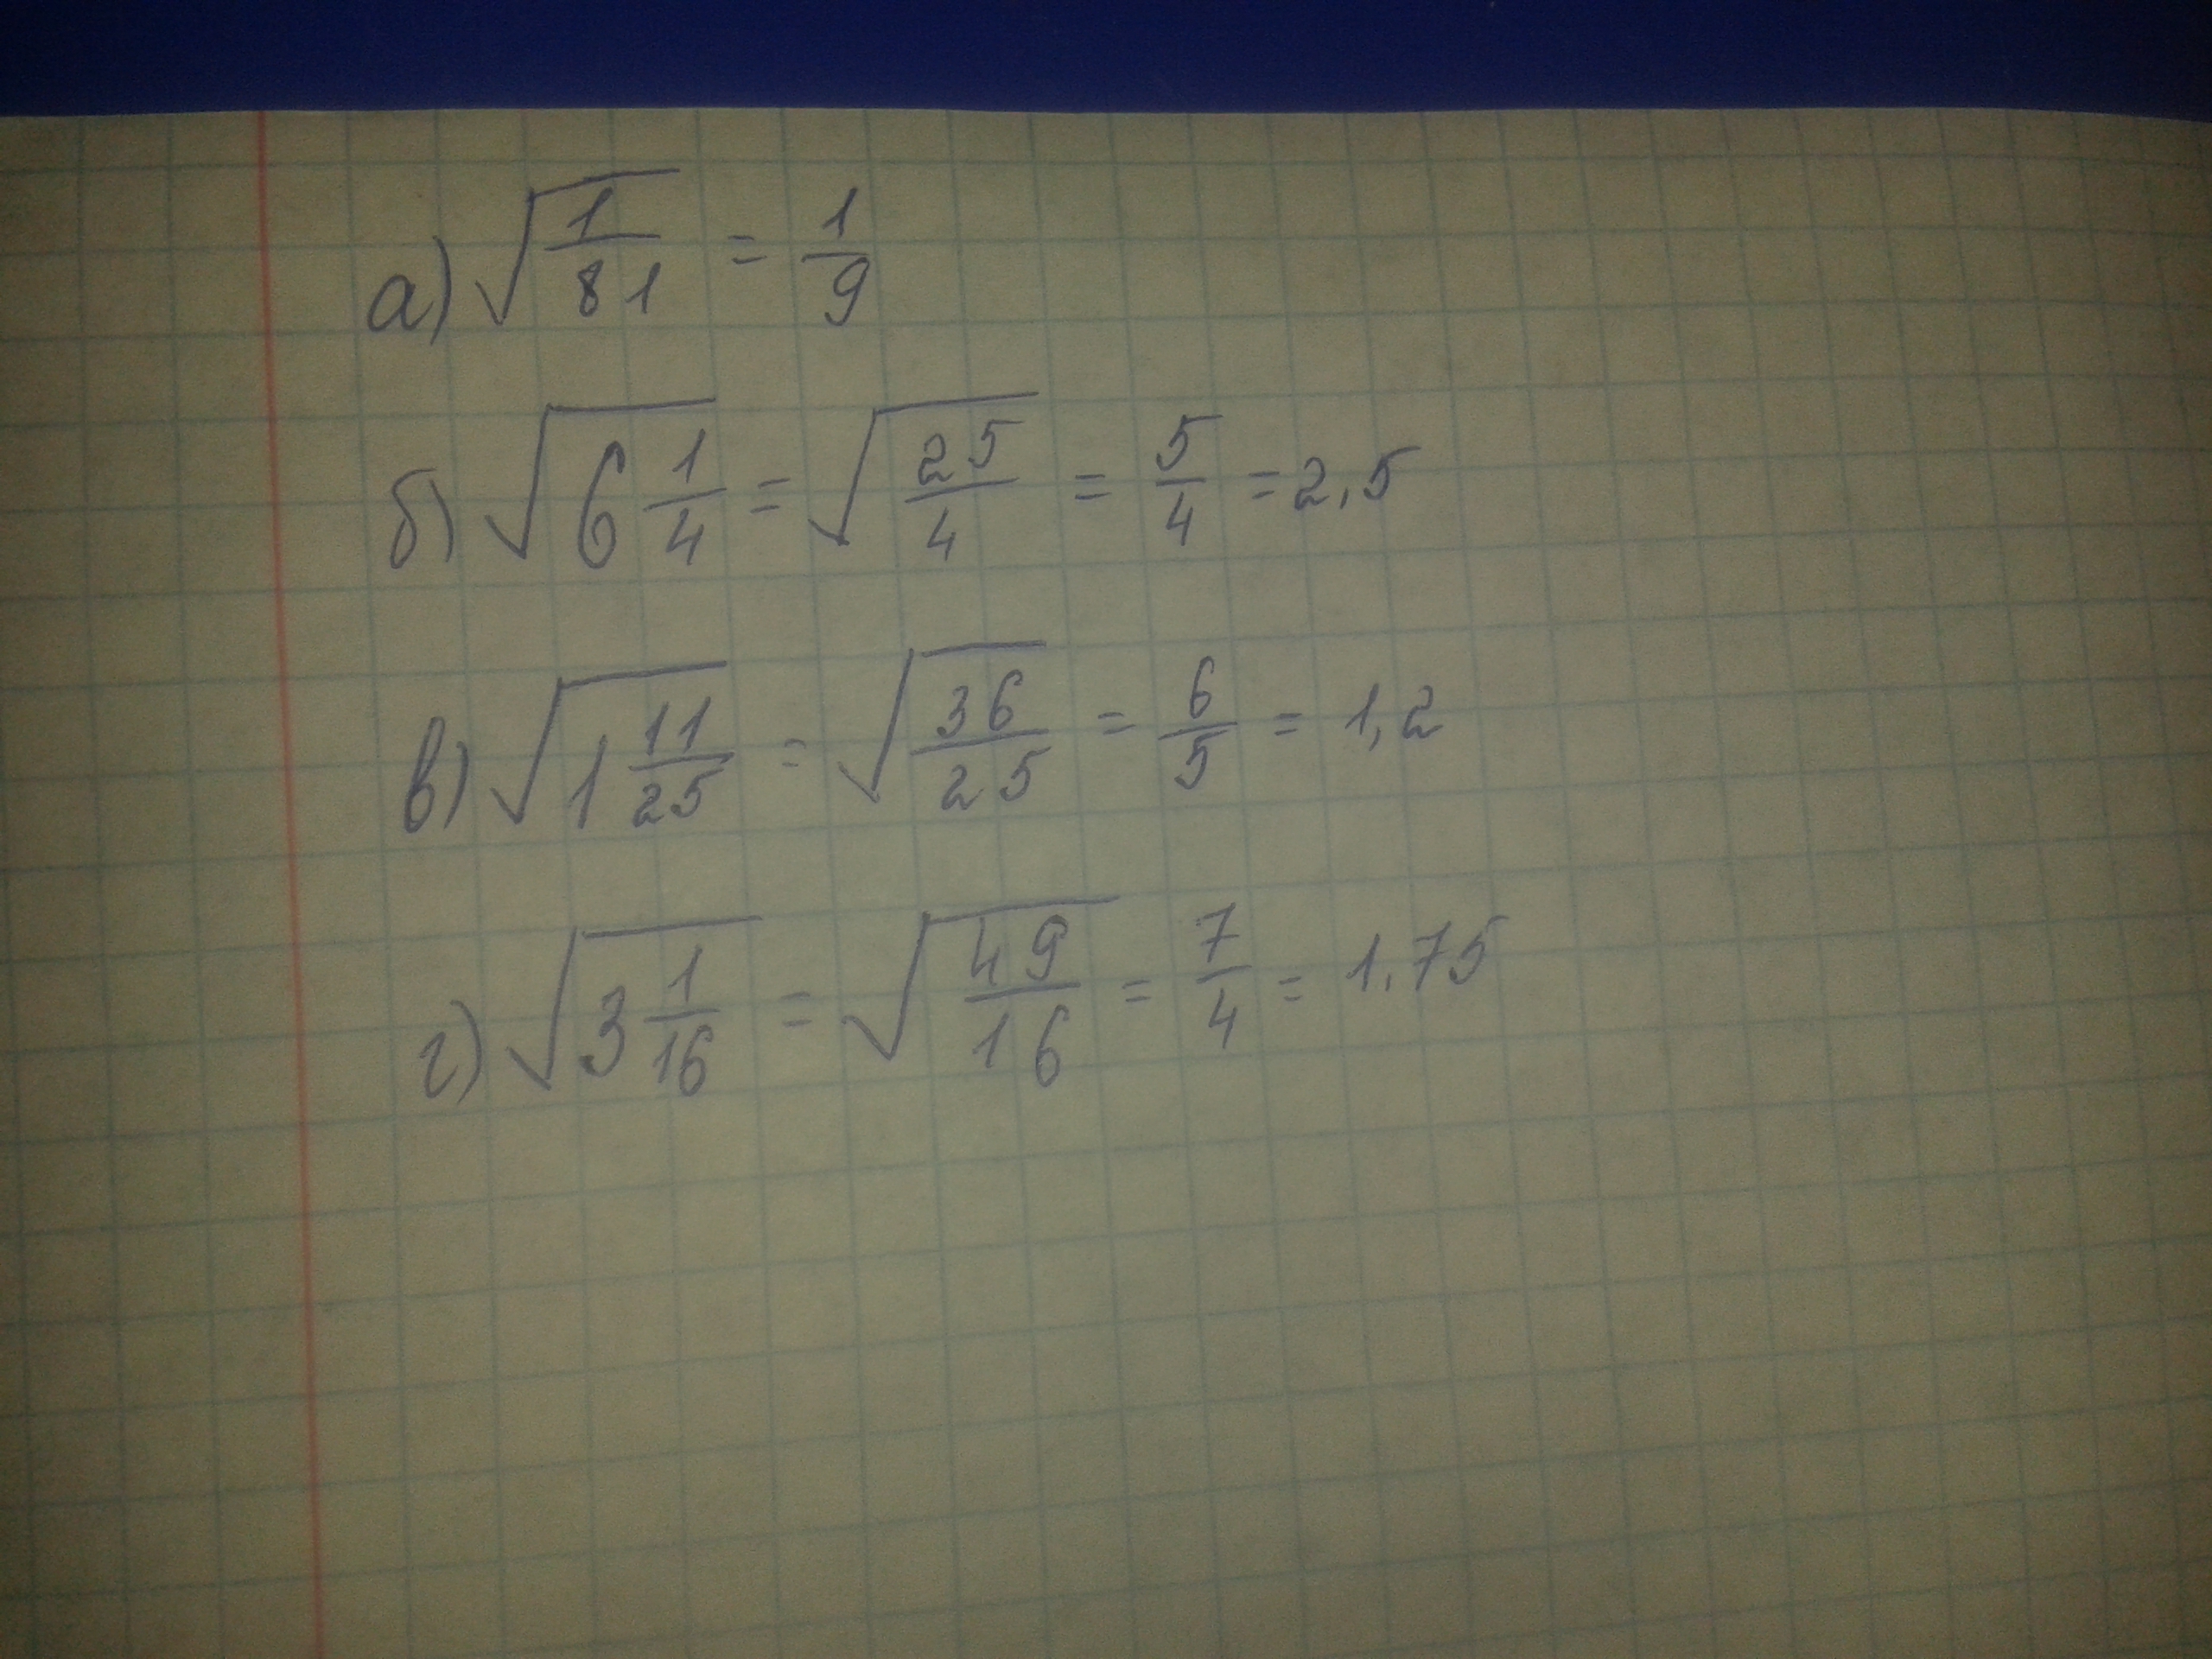 а) √(1/81) = 1/9
б) √(6 1/4) = √(25/4) = 5/4 = 2,5
в) √(1 11/25) = √(36/25) = 6/5 = 1,2
г) √(3 1/16) = √(49/16) = 7/4 = 1,75